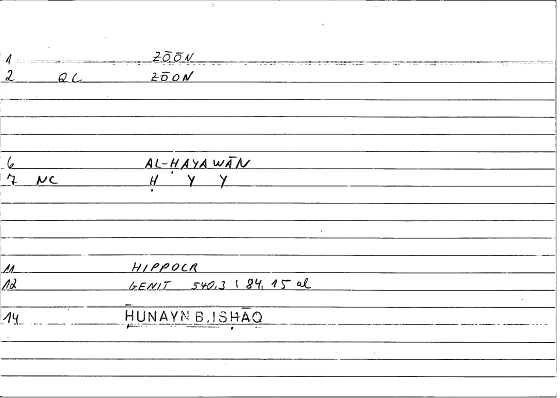 1 ZŌŌN
2 QC ZŌON
6 AL-ḤAYAWĀN
7 NC Ḥ Y Y
11 HIPPOCR
12 GENIT 540.3 ; 84, 15 al
14 ḤUNAYN B. ISḤĀQ